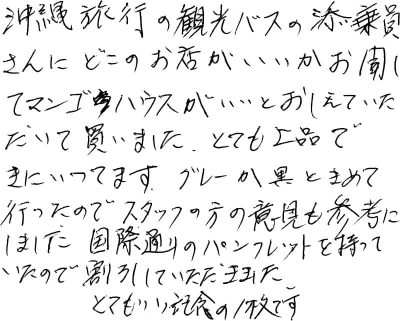 沖縄旅行の観光バスの添乗員
さんにどこのお店がいいかお聞し
てマンゴハウスがいいとおしえていた
だいて買いました、とても上品で
きにいってます。グレーか黒ときめて
行ったのでスタッフの方の意見も参考に
しました 国際通りのパンフレットを持って
いたので割引していただきました。
とてもいい記念の1枚です